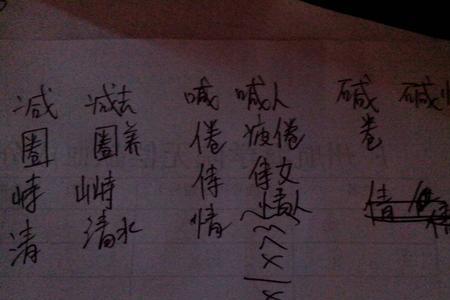 减 减去 喊 喊人 碱 碱
圈 圈养 倦 疲倦 卷
峙 山峙 侍 侍女
清 清水 情 情人 倩